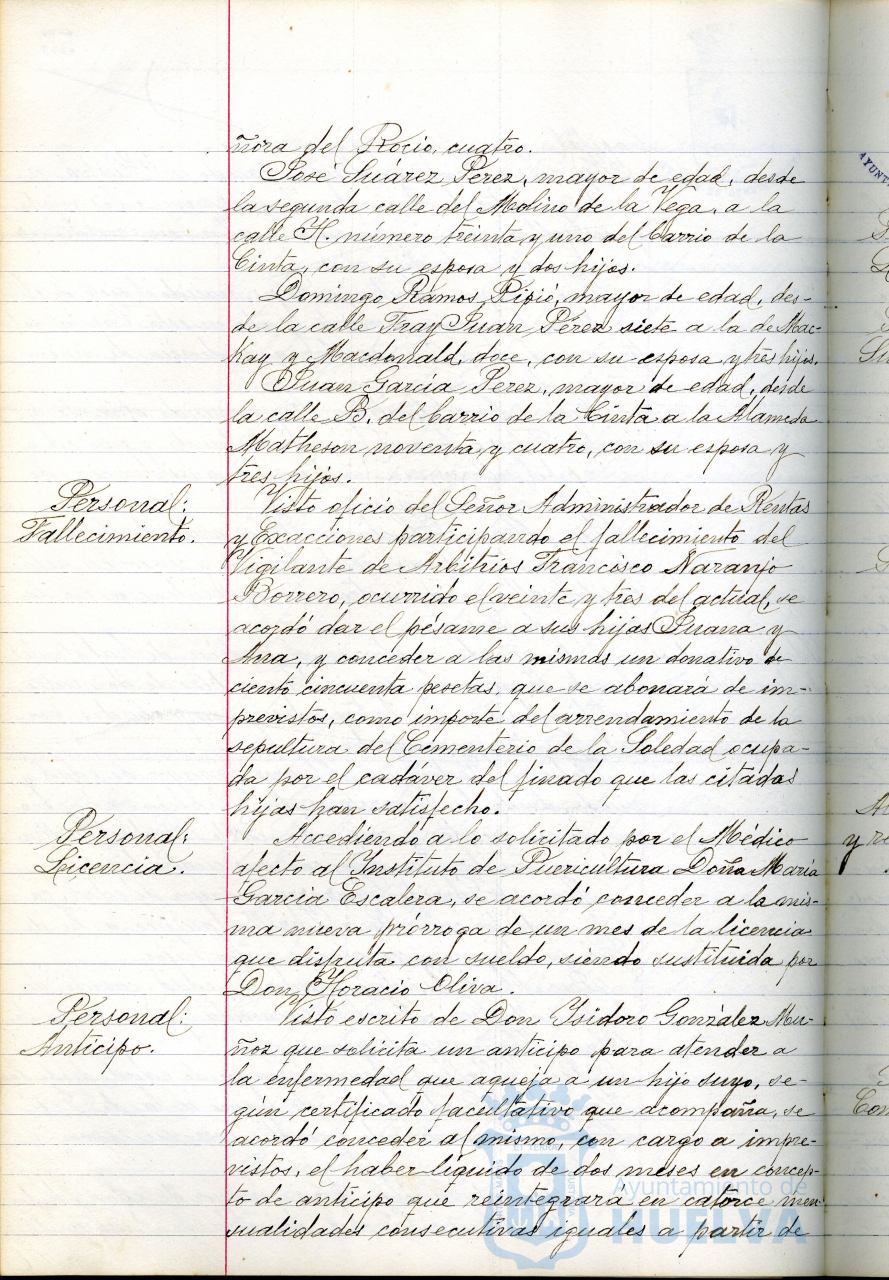 ñora del Rocio, cuatro.
José Suárez Perez, mayor de edad, desde
la segunda calle del Molino de la Vega, a la
calle H. número treinta y uno del barrio de la
Cinta, con su esposa y dos hijos.
Domingo Ramos Pipió, mayor de edad, des-
de la calle Fray Juan Pérez siete a la de Mac-
Kay y Macdonald, doce, con su esposa y tres hijos.
Juan García Perez, mayor de edad, desde
la calle B. del barrio de la Cinta a la Alameda
Matheson noventa y cuatro, con su esposa y
tres hijos.
Personal:
Fallecimiento.
Visto oficio del Señor Administrador de Rentas
y Exacciones participando el fallecimiento del
Vigilante de Arbitrios Francisco Naranjo
Borrero, ocurrido el veinte y tres del actual, se
acordó dar el pésame a sus hijas Juana y
Ana, y conceder a las mismas un donativo de
ciento cincuenta pesetas, que se abonará de im-
previstos, como importe del arrendamiento de la
sepultura del Cementerio de la Soledad ocupa-
da por el cadáver del finado que las citadas
hijas han satisfecho.
Personal:
Licencia.
Accediendo a lo solicitado por el Médico
afecto al Instituto de Puericultura Doña María
Garcia Escalera, se acordó conceder a la mis-
ma nueva prórroga de un mes de la licencia
que disfruta con sueldo, siendo sustituida por
Don Horacio Oliva.
Personal:
Anticipo.
Visto escrito de Don Isidoro González Mu-
ñoz que solicita un anticipo para atender a
la enfermedad que aqueja a un hijo suyo, se-
gún certificado facultativo que acompaña, se
acordó conceder al mismo, con cargo a impre-
vistos, el haber líquido de dos meses en concep-
to de anticipo que reintegrará en catorce men-
sualidades consecutivas iguales a partir de
Ayuntamiento de
HUELVA